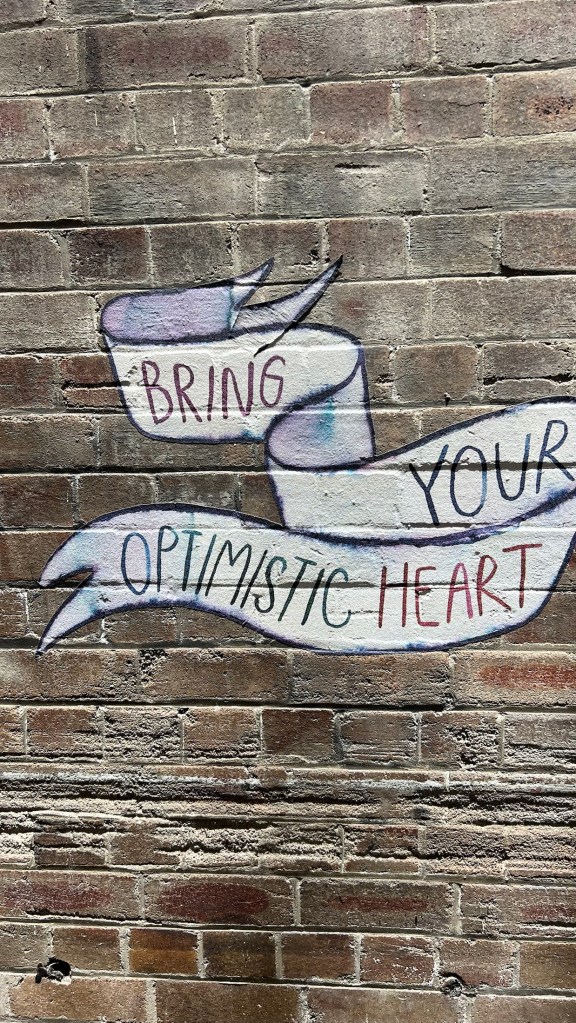 BRING
YOUR
OPTIMISTIC HEART